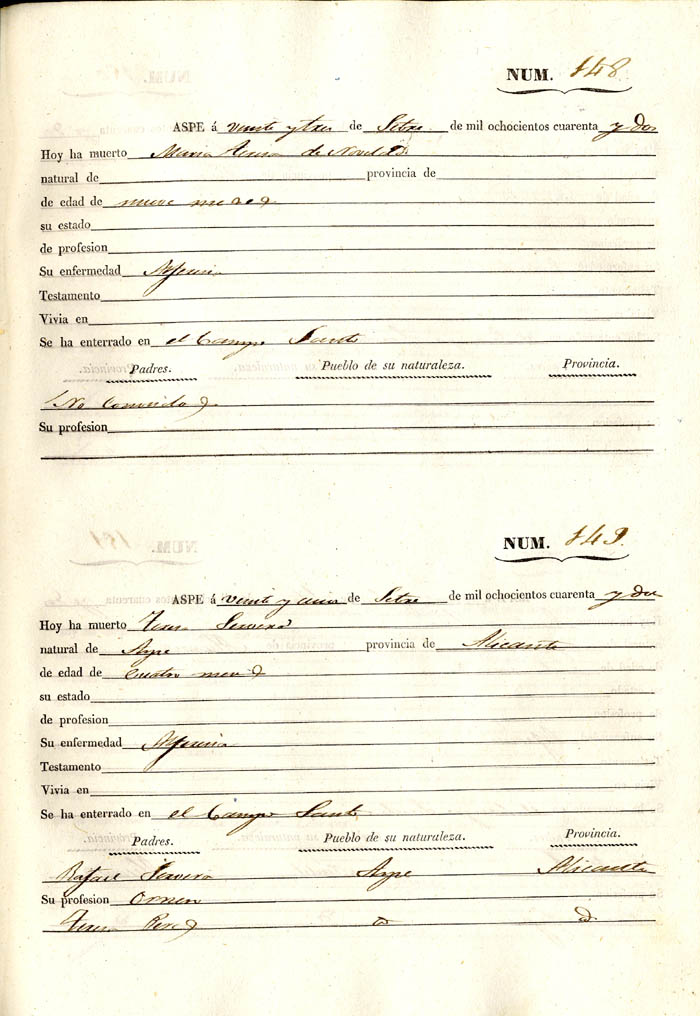 NUM. 148
ASPE á veinte y tres de Setre. de mil ochocientos cuarenta y dos
Hoy ha muerto Maria Teresa de Novelda
natural de provincia de
de edad de nueve meses
su estado
de profesion
Su enfermedad
Testamento
Vivia en
Se ha enterrado en el Campo Santo
Padres. Pueblo de su naturaleza. Provincia.
No conocidos
Su profesion
NUM. 149.
ASPE á veinte y de Setre de mil ochocientos cuarenta y dos
Hoy ha muerto Teresa Cervera
natural de Aspe provincia de Alicante
de edad de cuatro meses
su estado
de profesion
Su enfermedad
Testamento
Vivia en
Se ha enterrado en el Campo Santo
Padres. Pueblo de su naturaleza. Provincia.
Rafael Cervera Aspe Alicante
Su profesion
Teresa Perez id id